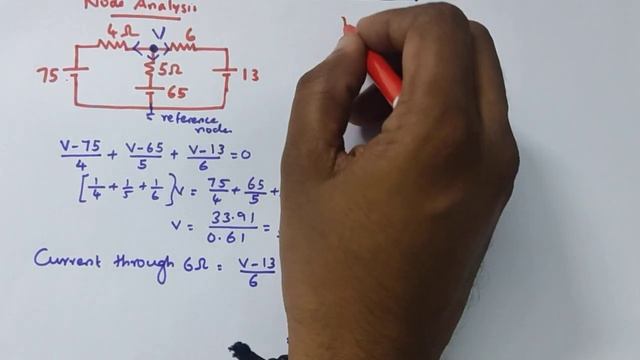 Node Analysis
4Ω V 6
75 5Ω 13
65
reference
node
V-75/4 + V-65/5 + V-13/6 = 0
[1/4 + 1/5 + 1/6] V = 75/4 + 65/5 +
V = 33.91/0.61 =
Current through 6Ω = V-13/6